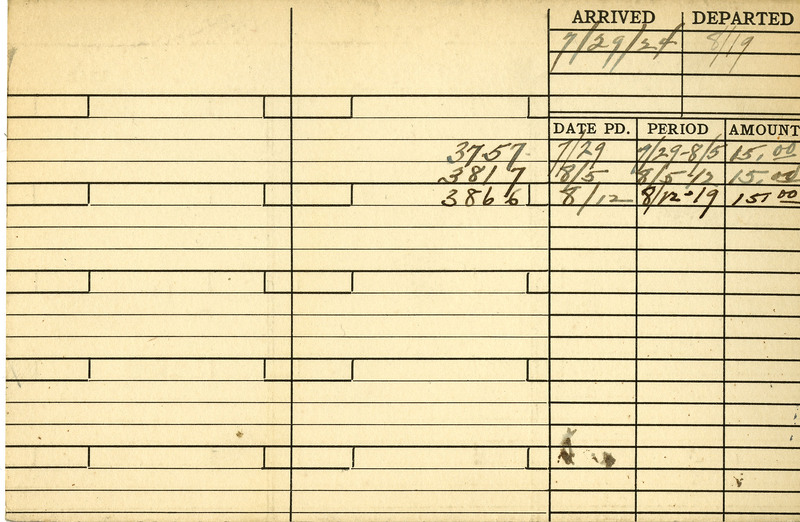 ARRIVED DEPARTED
7/29/24 8/19
DATE PD. PERIOD AMOUNT
3757 7/29 7/29-8/5 15.00
3817 8/5 8/5-12 15.00
3866 8/12 8/12-19 15.00